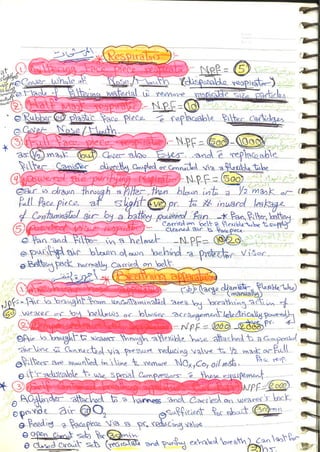 Respirators
① Filtering Face piece respirator NPF = 5
• Cover whole of Nose / Mouth (disposable respirator)
• Made of filtering material = remove respirable size particles
② Half Mask respirator - NPF = 10
• Rubber or plastic face piece è replaceable Filter Cartridges
• Cover Nose / Mouth.
③ Full Face piece respirator NPF = 500 - 1000
as ½ mask but Cover also Eyes and è replaceable
Filter Canister directly Coupled or Connected via a flexible tube
④ Powered air purifying respirator NPF = 500
• air is drawn through a filter, then blown into a ½ mask or
Full Face piece at slight +ve pr. to inward leakage
of Contaminated air by a battery powered Fan → Fan, Filter, battery
Carried on belt & flexible tube to supply
cleaned air to face piece
⑤ respirator
• Fan and Filter in a helmet - NPF = 10 20
• purified air blown down behind a protector visor
• Battery pack normally Carried on belt
Breathing apparatus
① (large diameter flexible tube)
• Air is brought from uncontaminated area by breathing action of
wearer or by bellows or blower arrangement (electrically powered)
(manually)
NPF = 50
② NPF = 1000 - 2000
• Air is brought to wearer through a flexible hose attached to a Compressed
air line & Connected via pressure reducing valve to ½ mask or Full
• Filters are mounted in line to remove NOx, CO, oil mists
• It's advisable to use special Compressors è these equipement
③ NPF = 2000
• A Cylinder attached to a harness and Carried on wearer's back
provide air or O₂
• Sufficient for about 30 min
• Feeding a Facepiece via a pr. reducing valve
• open Circuit sets For 30 min
• closed Circuit sets (and purify exhaled breath) Can last for